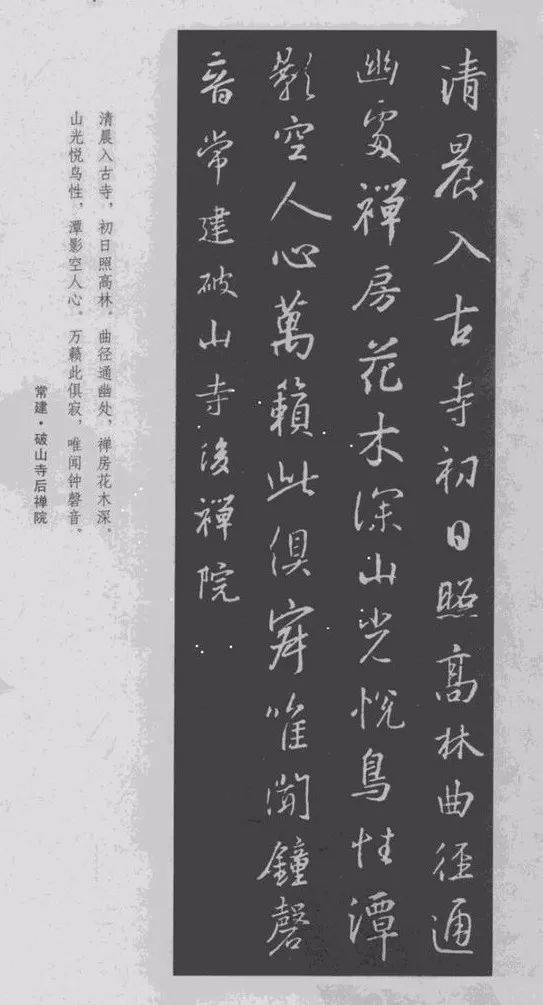 清晨入古寺初日照高林曲径通
幽処禅房花木深山光悦鳥性潭
影空人心萬籟此俱寂唯聞鐘磬
音常建破山寺後禅院
清晨入古寺，初日照高林。曲径通幽处，禅房花木深。
山光悦鸟性，潭影空人心。万籁此俱寂，唯闻钟磬音。
常建·破山寺后禅院